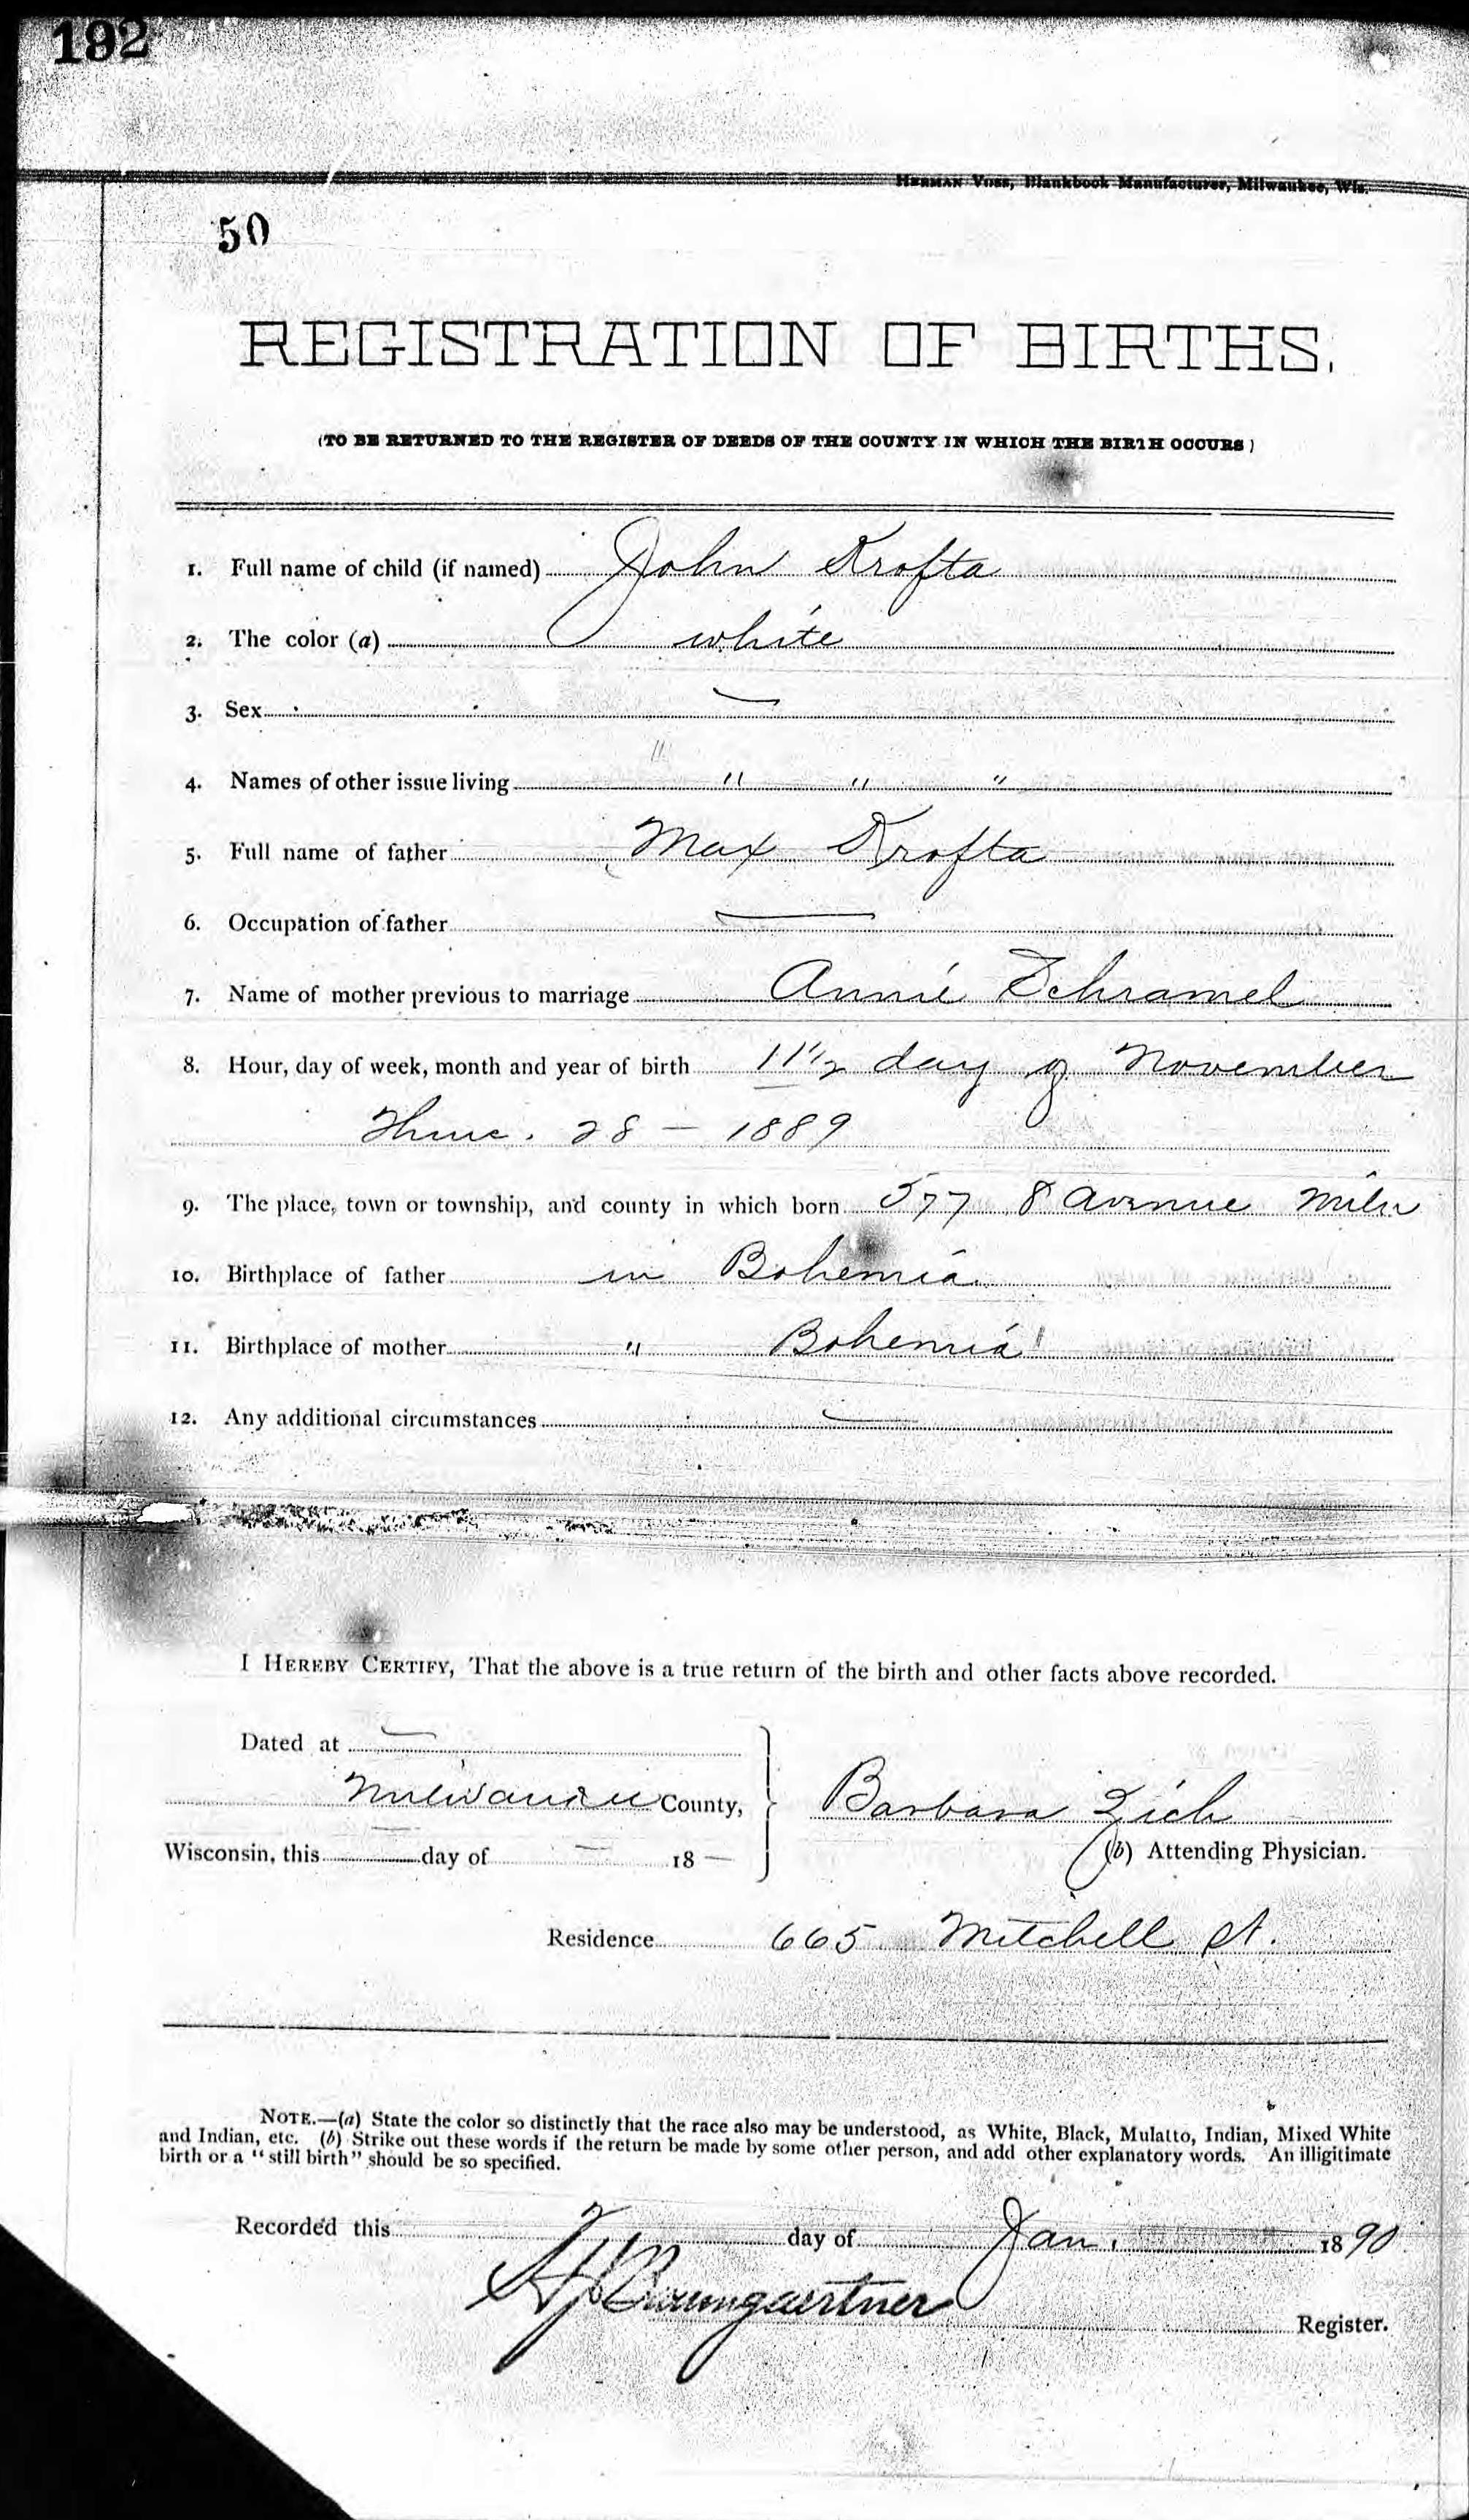 192
HERMAN VOSS, Blankbook Manufacturer, Milwaukee, Wis.
50
REGISTRATION OF BIRTHS.
(TO BE RETURNED TO THE REGISTER OF DEEDS OF THE COUNTY IN WHICH THE BIRTH OCCURS)
1. Full name of child (if named) John Krofta
2. The color (a) white
3. Sex —
4. Names of other issue living " " " "
5. Full name of father Max Krofta
6. Occupation of father —
7. Name of mother previous to marriage Annie Schramel
8. Hour, day of week, month and year of birth 11 1/2 day of November
Thurs. 28 — 1889
9. The place, town or township, and county in which born 577 8 Avenue Milw
10. Birthplace of father in Bohemia
11. Birthplace of mother " Bohemia
12. Any additional circumstances —
I HEREBY CERTIFY, That the above is a true return of the birth and other facts above recorded.
Dated at —
Milwaukee County,
Barbara Zich
Wisconsin, this — day of — 18 —
(b) Attending Physician.
Residence 665 Mitchell St.
NOTE.—(a) State the color so distinctly that the race also may be understood, as White, Black, Mulatto, Indian, Mixed White
and Indian, etc. (b) Strike out these words if the return be made by some other person, and add other explanatory words. An illigitimate
birth or a "still birth" should be so specified.
Recorded this 2 day of Jan. 1890
A J Baumgaertner
Register.